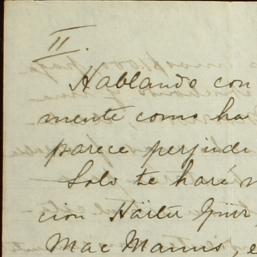 II.
Hablando con
mente como ha
parece perjudi
Solo te haré
cion Härter
Mac Manus, e